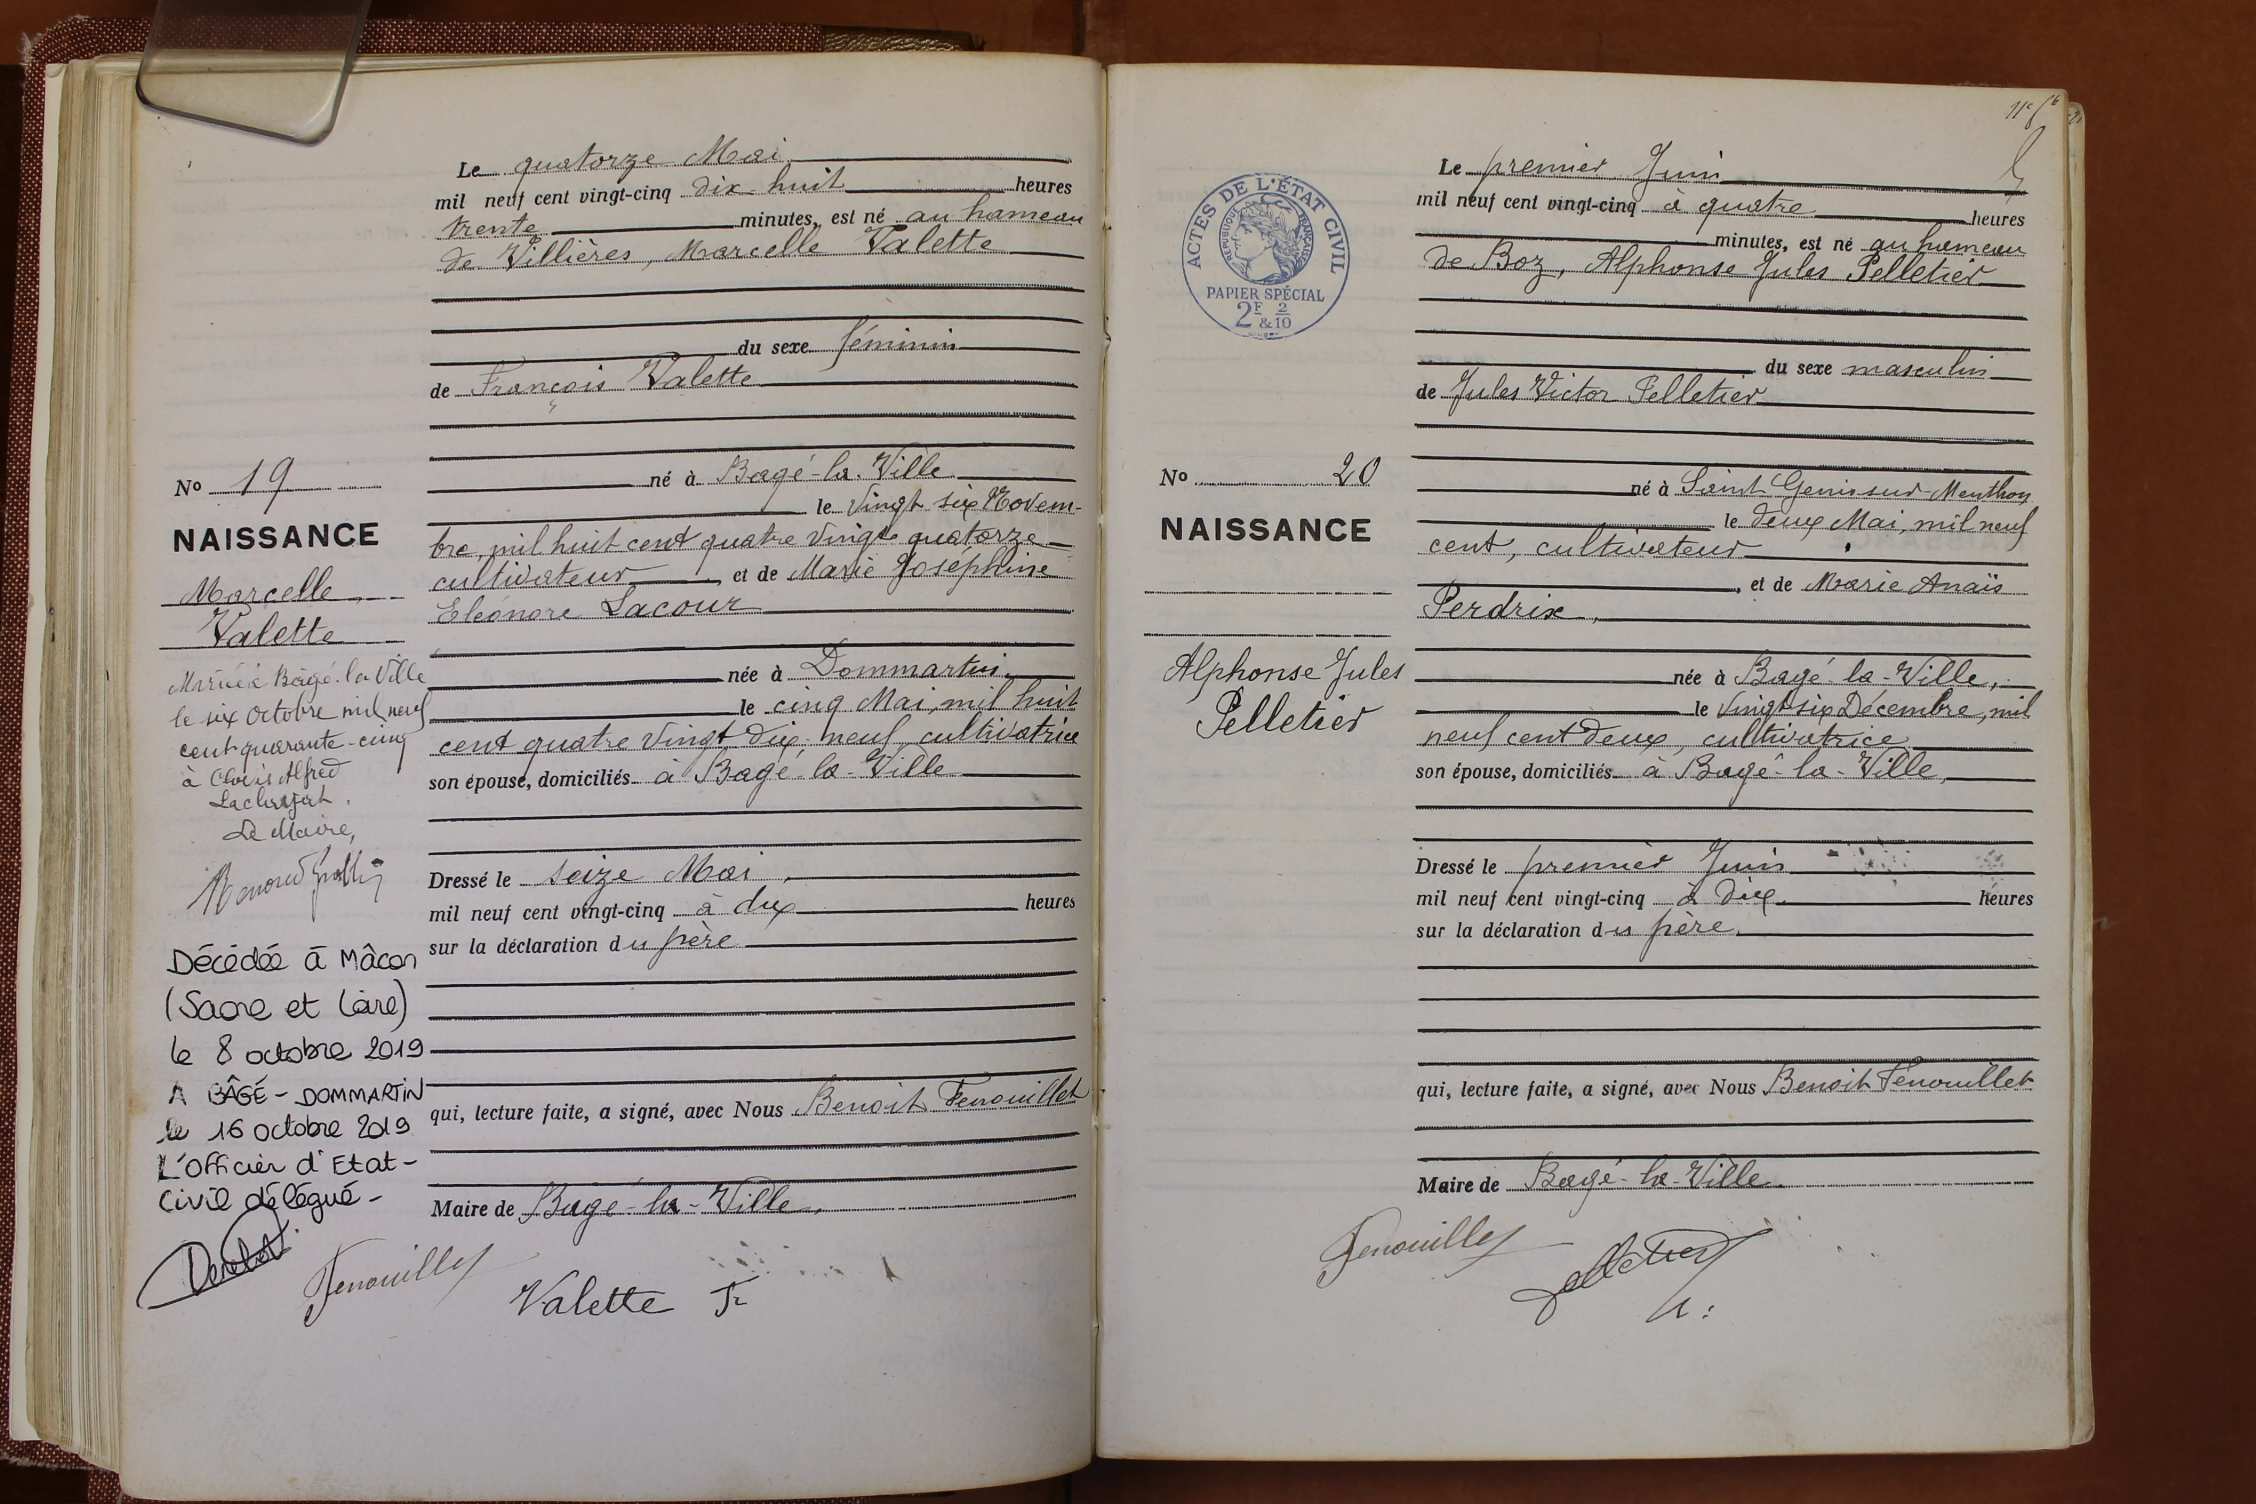 Le quatorze Mai
mil neuf cent vingt-cinq dix-huit heures
trente minutes, est né au hameau
de Villières, Marcelle Valette
du sexe féminin
de François Valette
né à Bagé-la-Ville
le vingt six Novem-
bre, mil huit cent quatre vingt quatorze
cultivateur, et de Marie Joséphine
Eléonore Lacour
née à Dommartin
le cinq Mai, mil huit
cent quatre vingt dix-neuf, cultivatrice
son épouse, domiciliés à Bagé-la-Ville
Dressé le seize Mai,
mil neuf cent vingt-cinq à dix heures
sur la déclaration du père
qui, lecture faite, a signé, avec Nous Benoit Fenouillet
Maire de Bagé-la-Ville.
Fenouillet
Valette Fr
No 19
NAISSANCE
Marcelle
Valette
Mariée à Bâgé-la-Ville
le six Octobre mil neuf
cent quarante-cinq
à Clovis Alfred
Le Maire,
Décédée à Mâcon
(Saone et Loire)
le 8 octobre 2019
A BÂGÉ-DOMMARTIN
le 16 octobre 2019
L'Officier d'Etat-
Civil délégué-
ACTES DE L'ÉTAT CIVIL
RÉPUBLIQUE FRANÇAISE
PAPIER SPÉCIAL
2F & 2/10
Le premier Juin
mil neuf cent vingt-cinq à quatre heures
minutes, est né au hameau
de Boz, Alphonse Jules Pelletier
du sexe masculin
de Jules Victor Pelletier
né à Saint Genis sur Menthon
le deux Mai, mil neuf
cent, cultivateur
, et de Marie Anaïs
Perdrix,
née à Bagé-la-Ville,
le vingt six Décembre, mil
neuf cent deux, cultivatrice
son épouse, domiciliés à Bagé-la-Ville,
Dressé le premier Juin
mil neuf cent vingt-cinq à dix heures
sur la déclaration du père.
qui, lecture faite, a signé, avec Nous Benoit Fenouillet
Maire de Bagé-la-Ville.
Fenouillet
Pelletier
No 20
NAISSANCE
Alphonse Jules
Pelletier